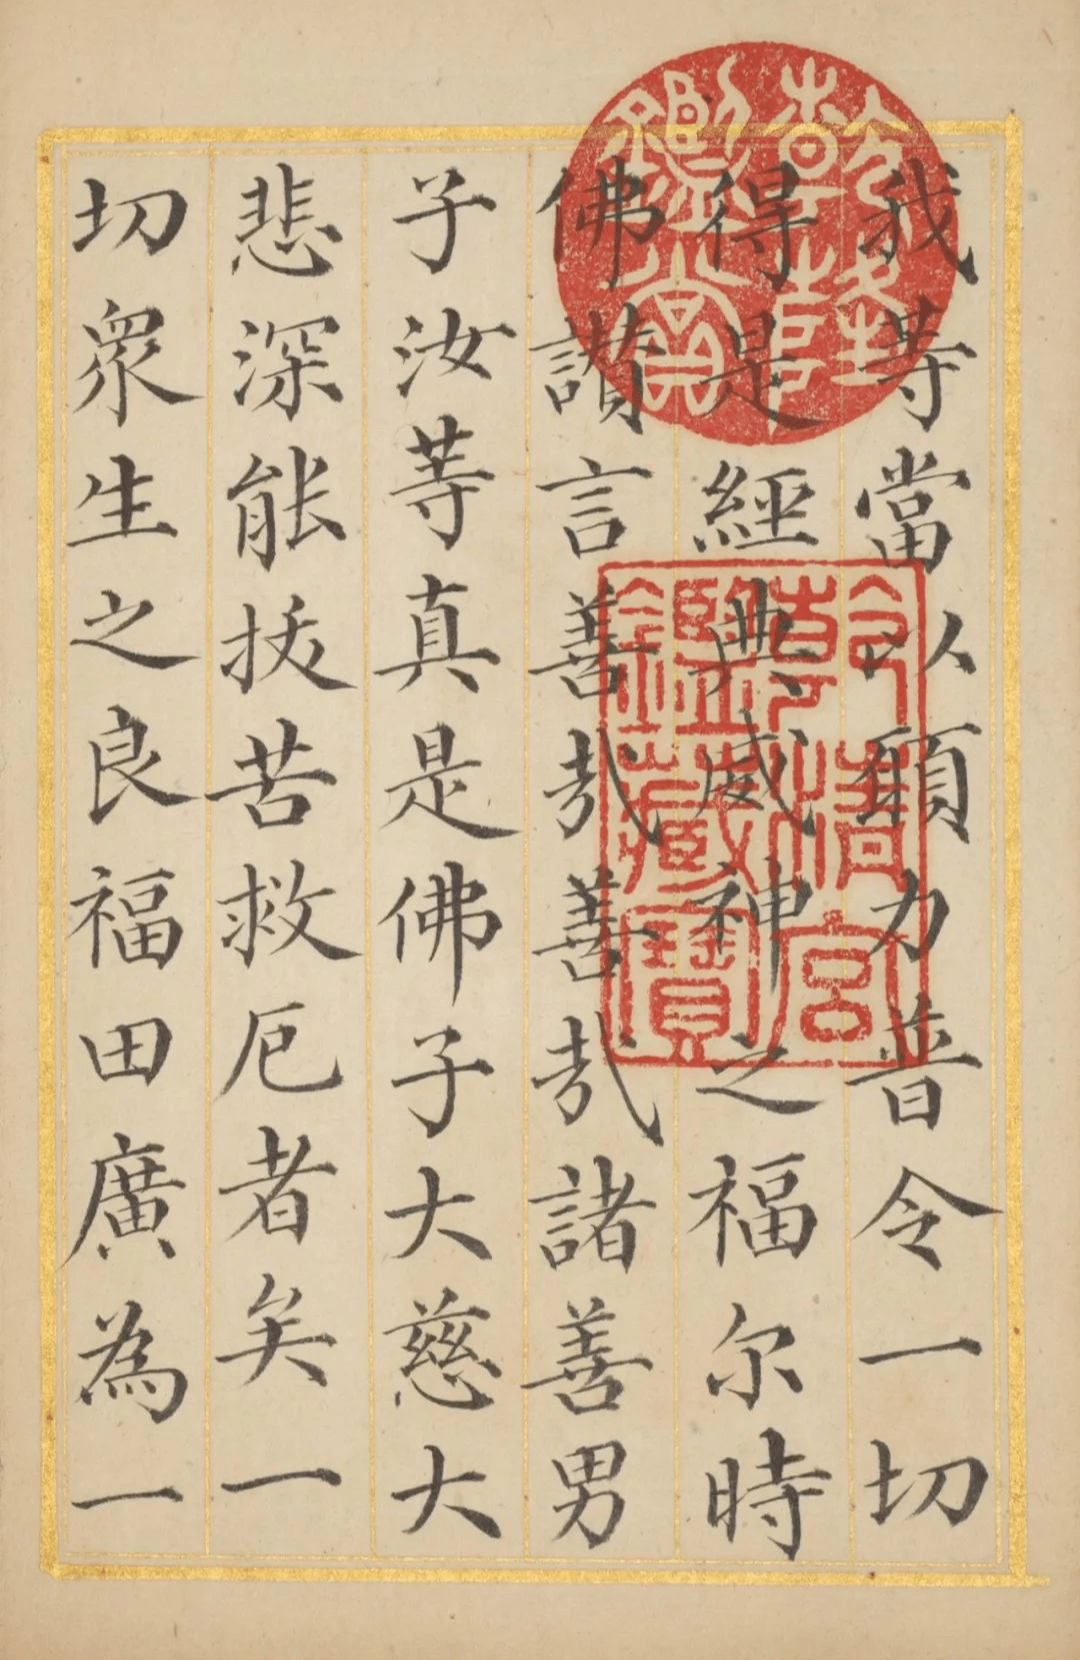 乾隆鑑賞
乾清宮鑒藏寶
我等當以願力普令一切
得是經典威神之福尔時
佛讚言善哉善哉諸善男
子汝等真是佛子大慈大
悲深能拔苦救厄者矣一
切衆生之良福田廣為一